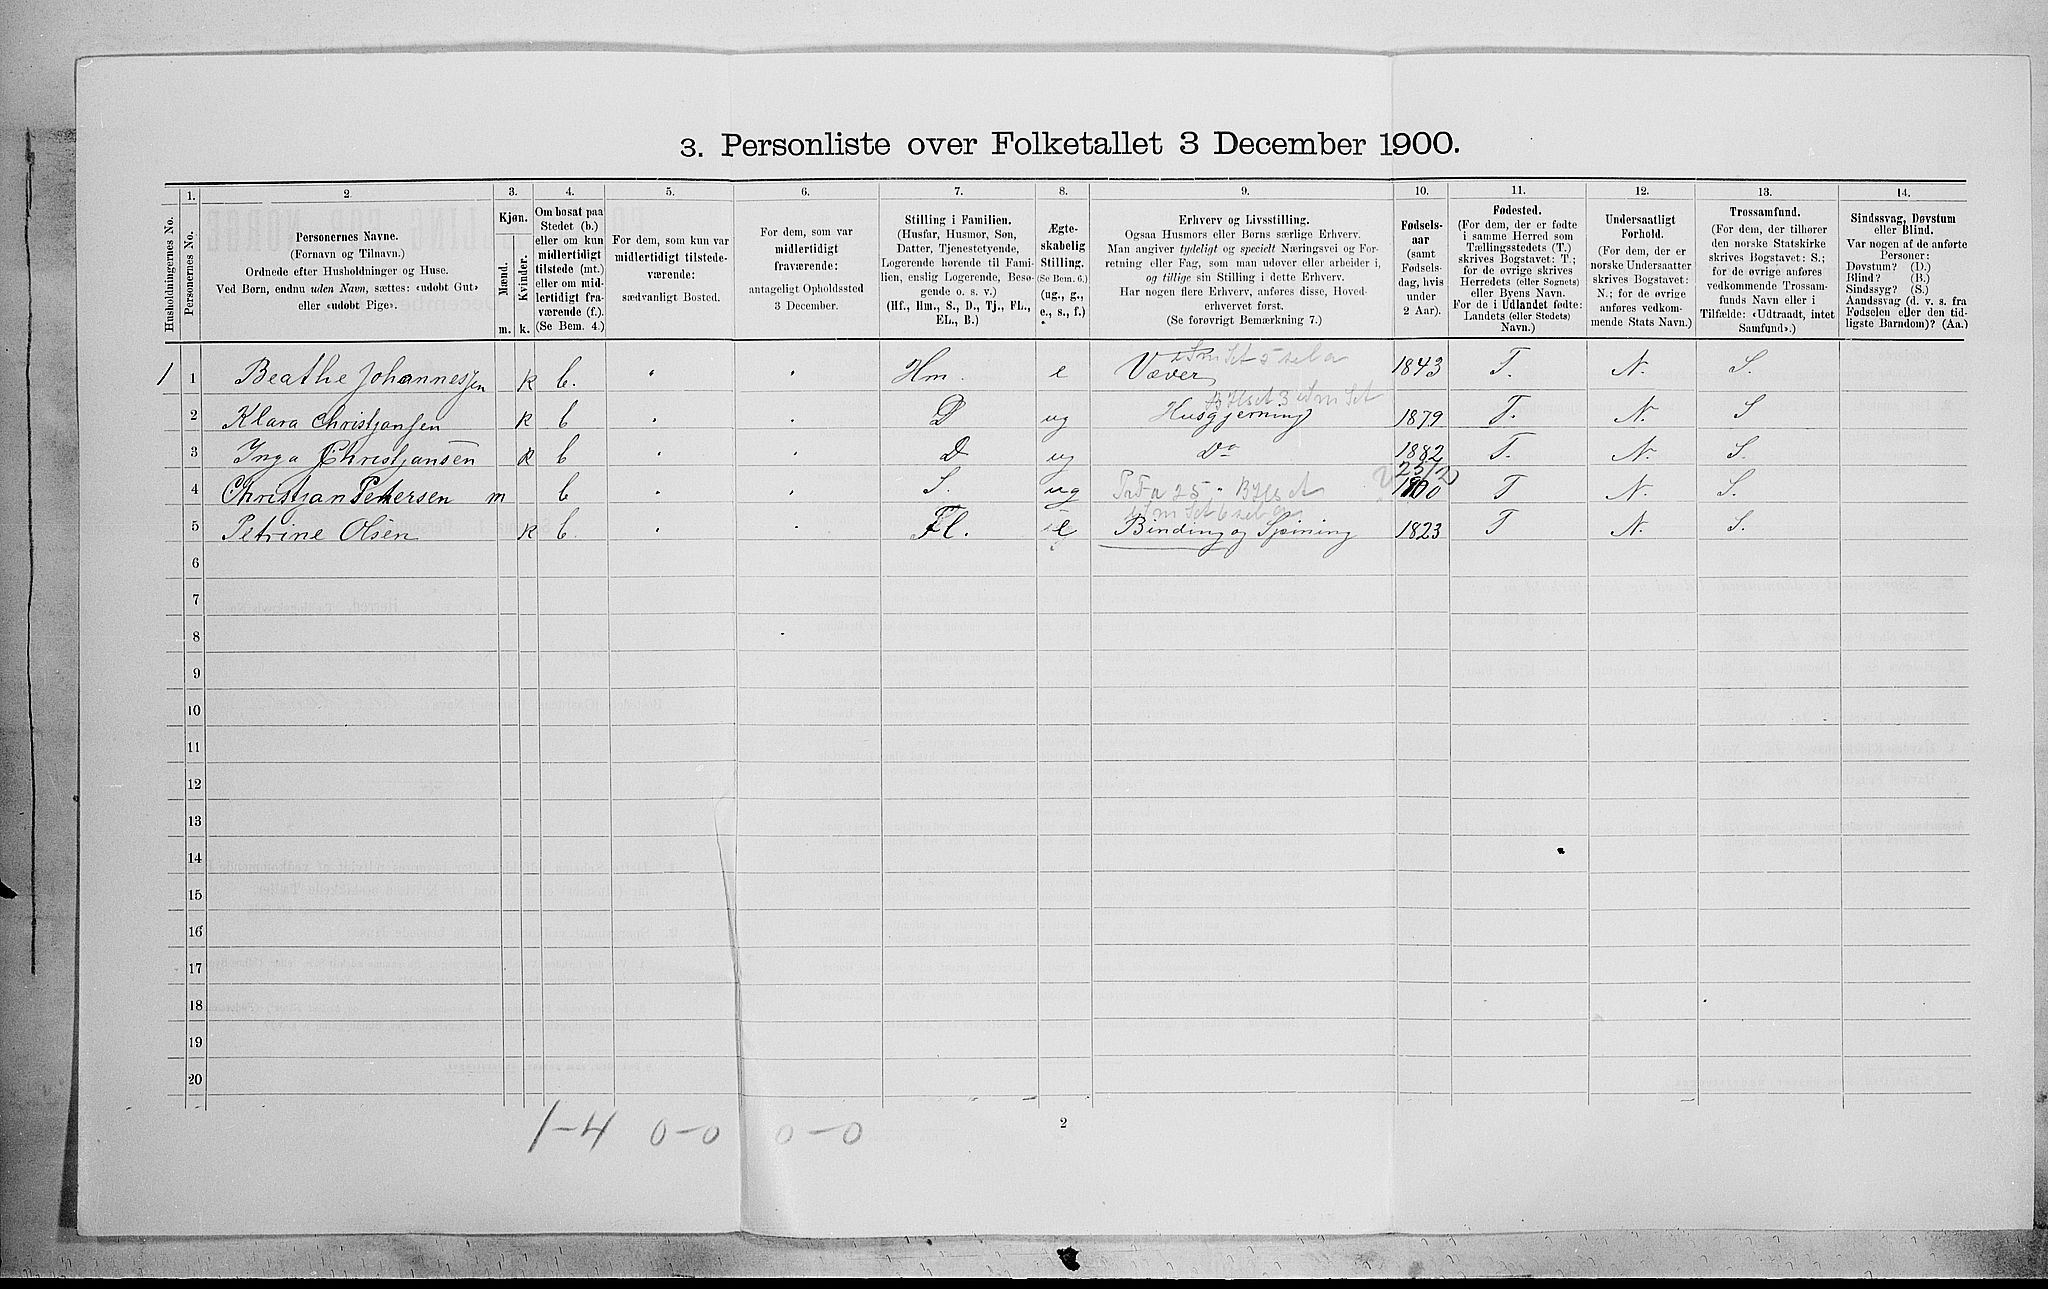 3. Personliste over Folketallet 3 December 1900.
1. 2. 3. 4. 5. 6. 7. 8. 9. 10. 11. 12. 13. 14.
Husholdningernes No.
Personernes No.
Personernes Navne.
(Fornavn og Tilnavn.)
Ordnede efter Husholdninger og Huse.
Ved Børn, endnu uden Navn, sættes: «udøbt Gut»
eller «udøbt Pige».
Kjøn.
Mænd.
Kvinder.
m. k.
Om bosat paa
Stedet (b.)
eller om kun
midlertidigt
tilstede (mt.)
eller om mid-
lertidigt fra-
værende (f.).
(Se Bem. 4.)
For dem, som kun var
midlertidigt tilstede-
værende:
sædvanligt Bosted.
For dem, som var
midlertidigt
fraværende:
antageligt Opholdssted
3 December.
Stilling i Familien.
(Husfar, Husmor, Søn,
Datter, Tjenestetyende,
Logerende hørende til Fami-
lien, enslig Logerende, Besø-
gende o. s. v.)
(Hf., Hm., S., D., Tj., FL.,
EL., B.)
Ægte-
skabelig
Stilling.
(Se Bem. 6.)
(ug., g.,
e., s., f.)
Erhverv og Livsstilling.
Ogsaa Husmors eller Børns særlige Erhverv.
Man angiver tydeligt og specielt Næringsvei og For-
retning eller Fag, som man udøver eller arbeider i,
og tillige sin Stilling i dette Erhverv.
Har nogen flere Erhverv, anføres disse, Hoved-
erhvervet først.
(Se forøvrigt Bemærkning 7.)
Fødsels-
aar
(samt
Fødsels-
dag, hvis
under
2 Aar).
Fødested.
(For dem, der er fødte
i samme Herred som
Tællingsstedets (T.)
skrives Bogstavet: T.;
for de øvrige skrives
Herredets (eller Sognets)
eller Byens Navn.
For de i Udlandet fødte:
Landets (eller Stedets)
Navn.)
Undersaatligt
Forhold.
(For dem, der er
norske Undersaatter
skrives Bogstavet:
N.; for de øvrige
anføres vedkom-
mende Stats Navn.)
Trossamfund.
(For dem, der tilhører
den norske Statskirke
skrives Bogstavet: S.;
for de øvrige anføres
vedkommende Trossam-
funds Navn eller i
Tilfælde: «Udtraadt, intet
Samfund».)
Sindssvag, Døvstum
eller Blind.
Var nogen af de anførte
Personer:
Døvstum? (D.)
Blind? (B.)
Sindssyg? (S.)
Aandssvag (d. v. s. fra
Fødselen eller den tid-
ligste Barndom)? (Aa.)
1 1 Beathe Johannessen k b. " " Hm. e Væver 1843 T. N. S.
2 Klara Christjansen k b " " D ug Husgjerning 1879 T. N. S
3 Inga Christjansen k b " " D ug Do 1882 T. N. S.
4 Christjan Petersen m b " " S. ug 1900 T N. S.
5 Petrine Olsen k b. " " Fl. e Binding og Spining 1823 T N. S.
6
7
8
9
10
11
12
13
14
15
16
17
18
19
20
1-4 0-0 0-0
2